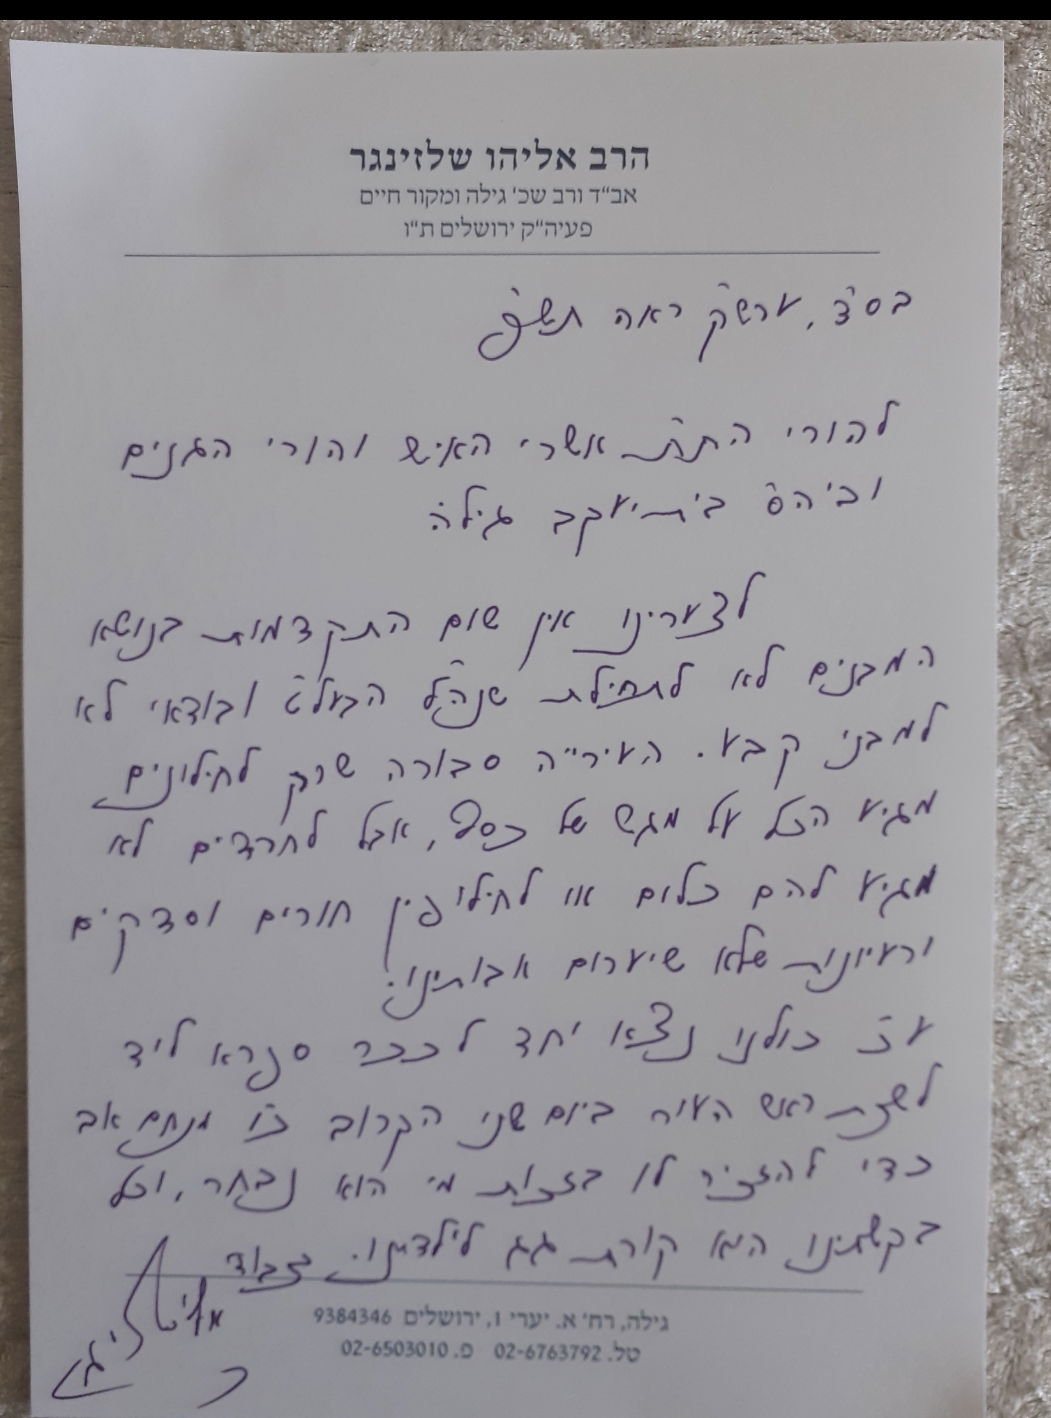 הרב אליהו שלזינגר
אב"ד ורב שכ' גילה ומקור חיים
פעיה"ק ירושלים ת"ו
בס"ד, ערש"ק ראה תש"פ
להורי הת"ת אשרי האיש והורי הגנים
וביה"ס בית יעקב גילה
לצערינו אין שום התקדמות בנושא
המבנים לא לתחילת שנה"ל הבעל"ט ובודאי לא
למבני קבע. העירייה סבורה שרק לחילונים
מגיע הכל על מגש של כסף, אבל לחרדים לא
מגיע להם כלום או לחילופין חורים וסדקים
ורעיונות שלא שיערום אבותינו.
ע"כ כולנו נצא יחד לככר ספרא ליד
לשכת ראש העיר ביום שני הקרוב כ"ז מנחם אב
כדי להזכיר לו בזכות מי הוא נבחר, וכל
בקשתינו היא קורת גג לילדינו. בכבוד
גילה, רח' א. יערי 1, ירושלים 9384346
טל. 02-6763792 פ. 02-6503010